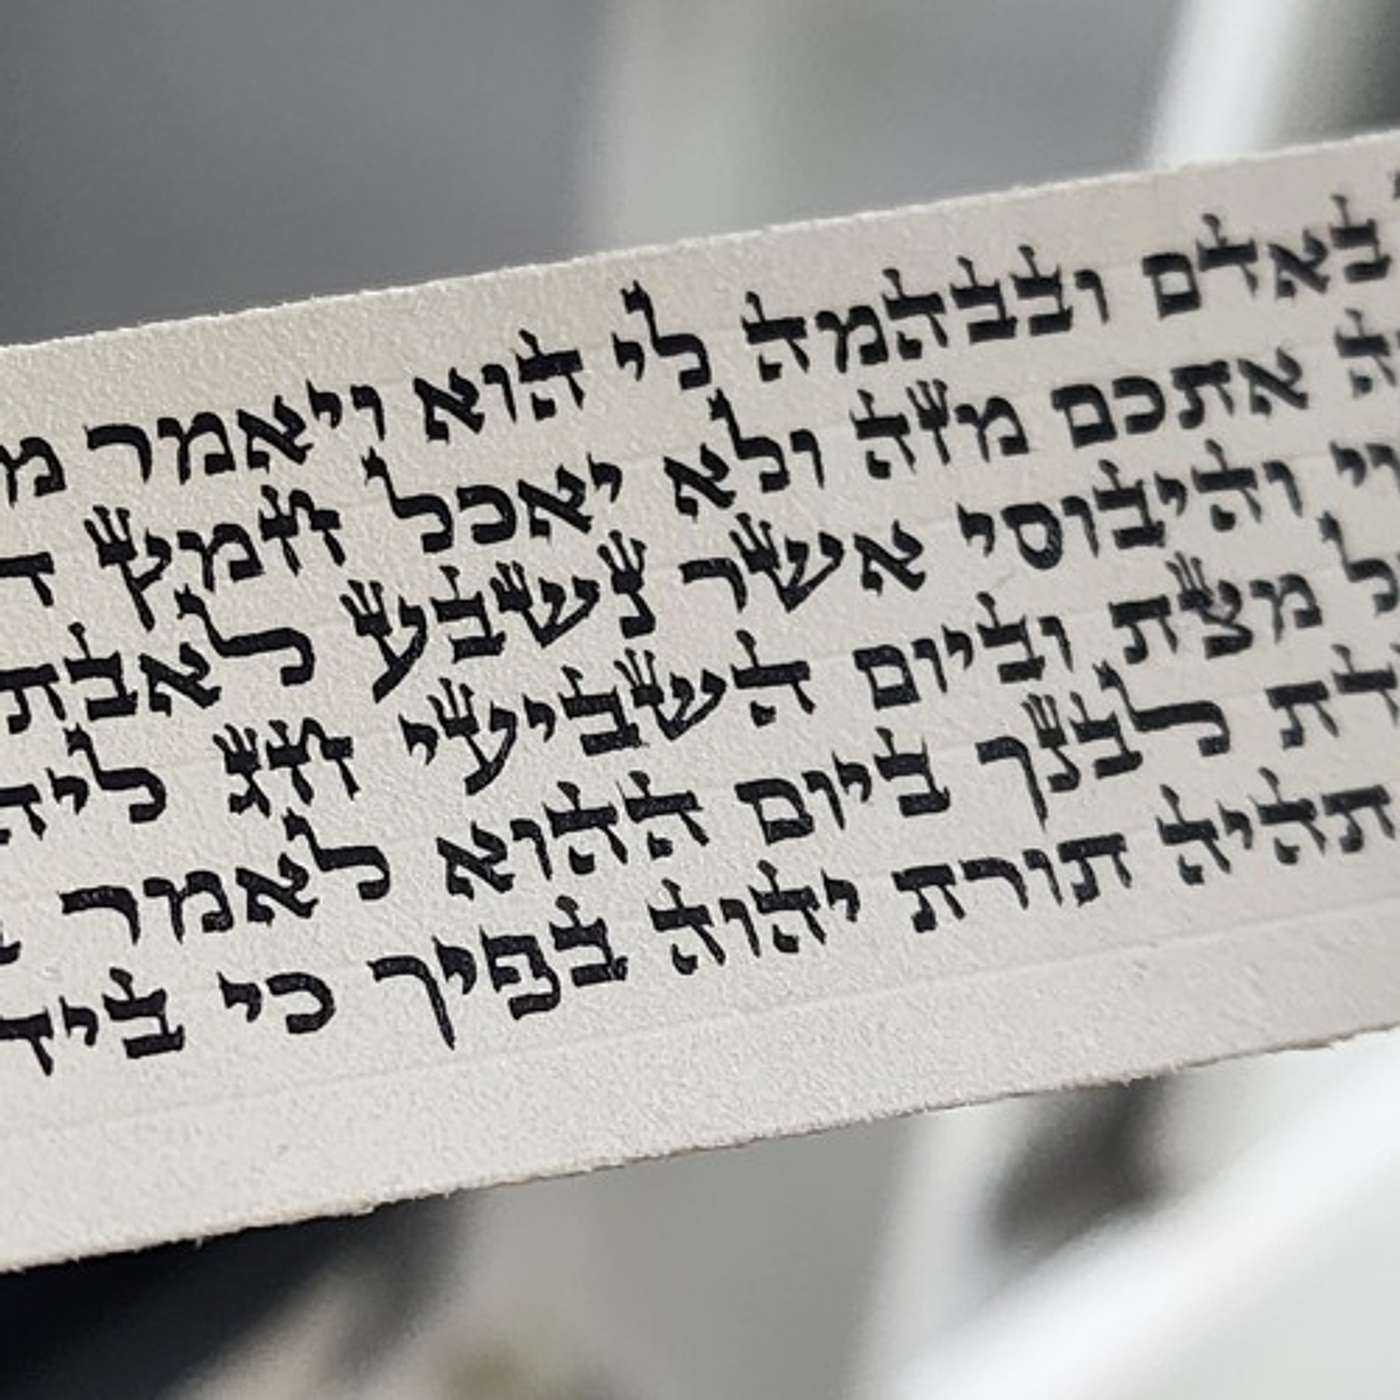 באדם ובבהמה לי הוא ויאמר
אתכם מזה ולא יאכל חמץ
והיבוסי אשר נשבע לאבת
מצת וביום השביעי חג
לבנך ביום ההוא לאמר
תהיה תורת יהוה בפיך כי ביד